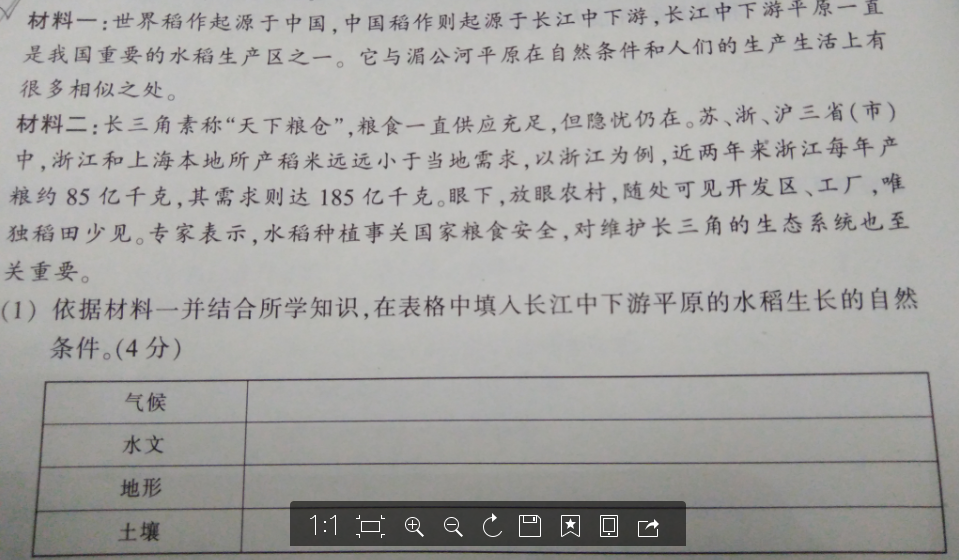 材料一:世界稻作起源于中国,中国稻作则起源于长江中下游,长江中下游平原一直
是我国重要的水稻生产区之一。它与湄公河平原在自然条件和人们的生产生活上有
很多相似之处。
材料二:长三角素称“天下粮仓”,粮食一直供应充足,但隐忧仍在。苏、浙、沪三省(市)
中,浙江和上海本地所产稻米远远小于当地需求,以浙江为例,近两年来浙江每年产
粮约 85 亿千克,其需求则达 185 亿千克。眼下,放眼农村,随处可见开发区、工厂,唯
独稻田少见。专家表示,水稻种植事关国家粮食安全,对维护长三角的生态系统也至
关重要。
(1) 依据材料一并结合所学知识,在表格中填入长江中下游平原的水稻生长的自然
条件。(4 分)
气候
水文
地形
土壤
1:1